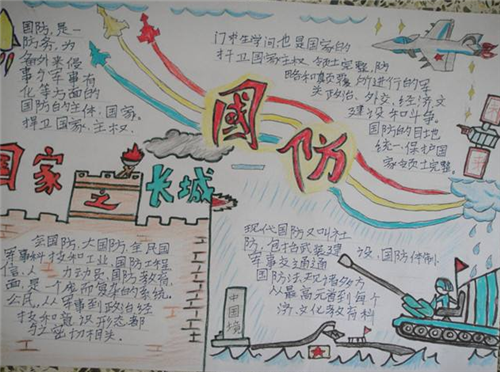 国防,是一
防务,为
备外来侵
事个军事有
化等方面的
国防的主体,国家。
捍卫国家、主权
门中生学问也是国家的
扞卫国家主权、领土完整,防
略和颠覆,所进行的军
关政治、外交、经济文
建设和斗争。
国防的目地
统一,保护国
家领土完整。
國防
国家之长城
全国防,大国防,全民国
军事科技和工业,国防工程
信,人 力动员,国防教育,
面,是个庞而复杂的系统。
公民,从军事到政治经
技和意识形态都
密切相关。
现代国防又叫社
防,包括武装建 设,国防体制
军事交通
国防法
从最高元首到每个
济,文化教育科
中国境